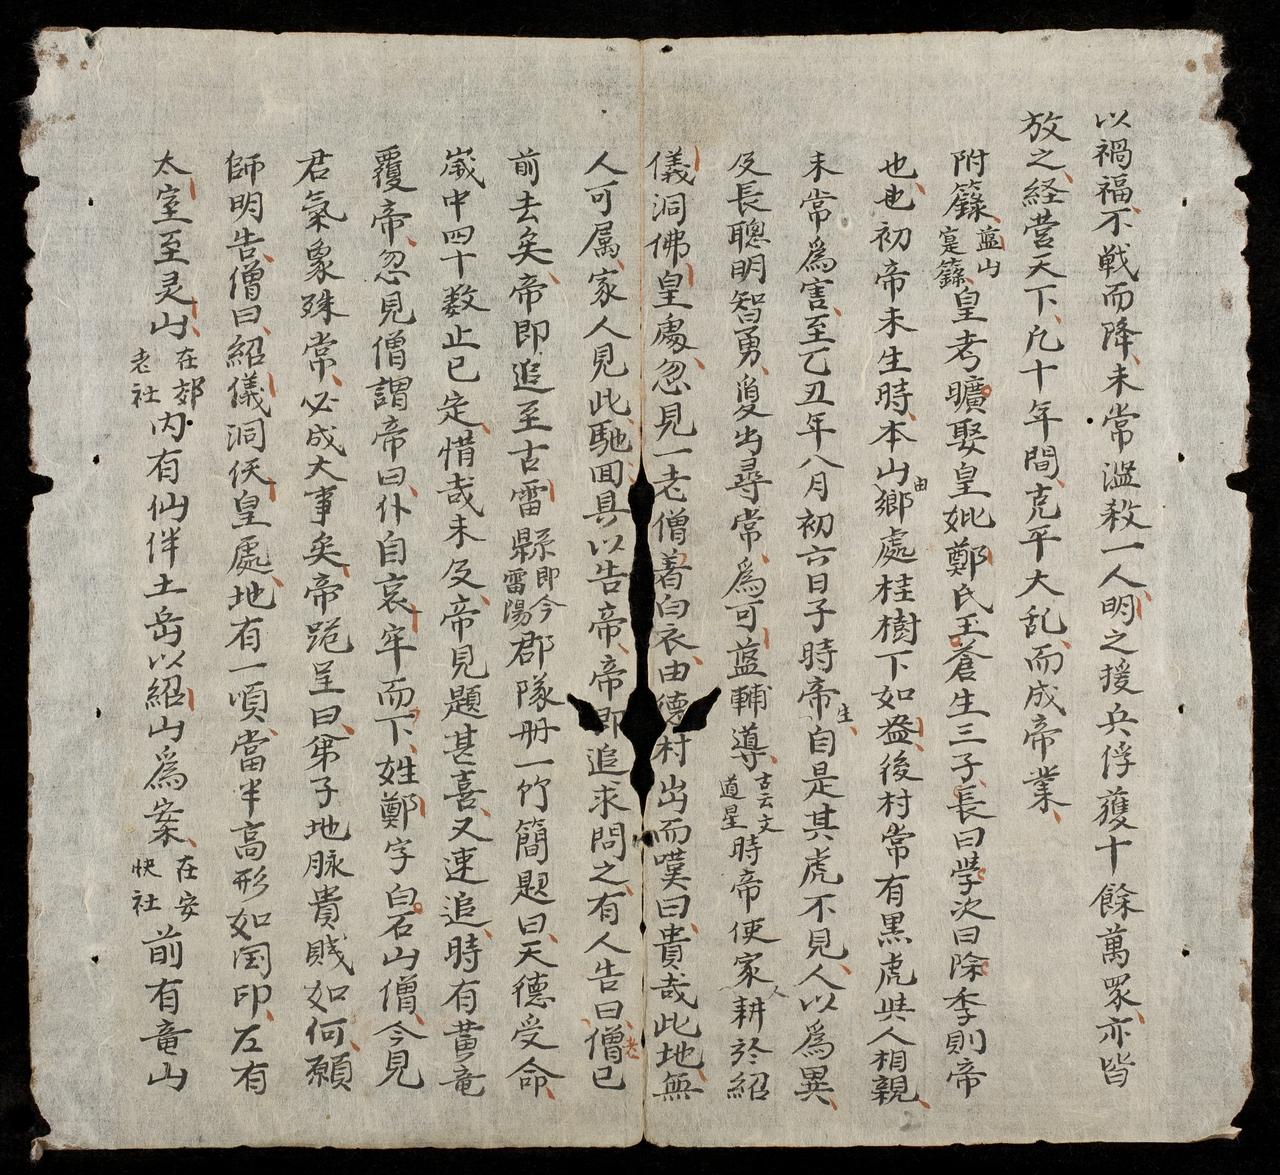 以禍福不戦而降未常濫殺一人明之援兵俘獲十餘萬眾亦皆
放之経营天下凢十年間克平大乱而成帝業
附籙藍山寔籙皇考曠娶皇妣鄭氏玉蒼生三子長曰學次曰除季則帝
也初帝未生時本山由鄉處桂樹下如盎後村常有黒虎與人相親
未常為害至乙丑年八月初六日子時帝生自是其虎不見人以為異
及長聰明智勇敻出尋常為可藍輔導古云文道星時帝使家人耕於紹
儀洞佛皇處忽見一老僧著白衣由德村出而嘆曰貴哉此地無
人可属家人見此馳囬具以告帝帝即追求問之有人告曰老僧已
前去矣帝即追至古雷縣即今雷陽郡隊册一竹簡題曰天德受命
嵗中四十数止已定惜哉未及帝見題甚喜又速追時有黃竜
覆帝忽見僧謂帝曰仆自哀牢而下姓鄭字白石山僧今見
君氣象殊常必成大事矣帝跪呈曰弟子地脉貴賎如何願
師明告僧曰紹儀洞佛皇處地有一頃當半高形如国印左有
太室至灵山在郊老社内有仙伴土岳以紹山為案在安快社前有竜山